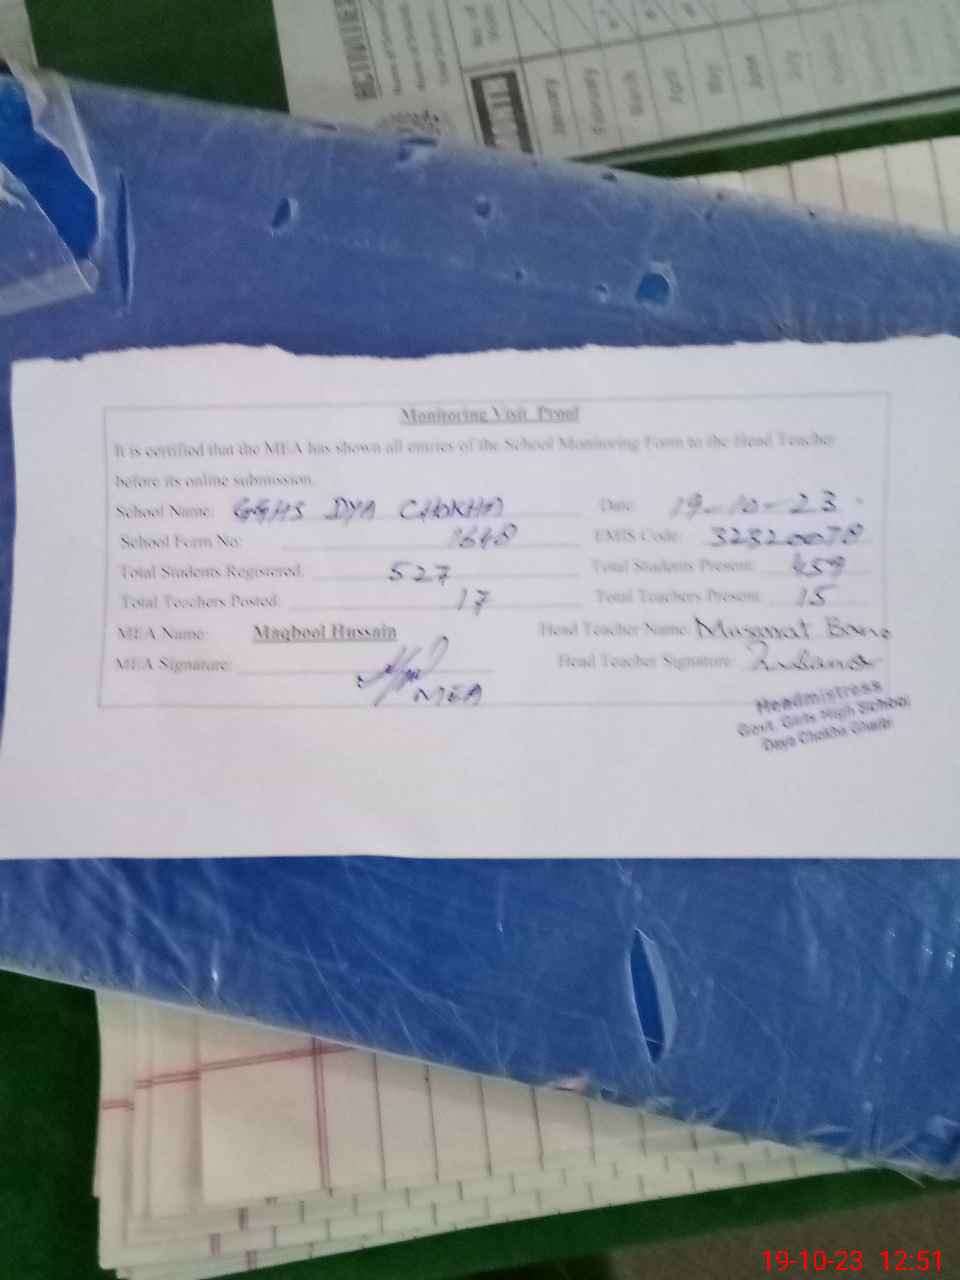 ACTIVITIES
No. of
January
February
March
April
May
June
July
Monitoring Visit Proof
It is certified that the MEA has shown all entries of the School Monitoring Form to the Head Teacher
before its online submission.
School Name: GGHS DYA CHOKHA Date: 19-10-23
School Form No: 1648 EMIS Code: 32320078
Total Students Registered: 527 Total Students Present: 459
Total Teachers Posted: 17 Total Teachers Present: 15
MEA Name: Maqbool Hussain Head Teacher Name: Bano
MEA Signature: Head Teacher Signature:
MEA
Headmistress
Govt. Girls High School
Daya Chokha Gharbi
19-10-23 12:51